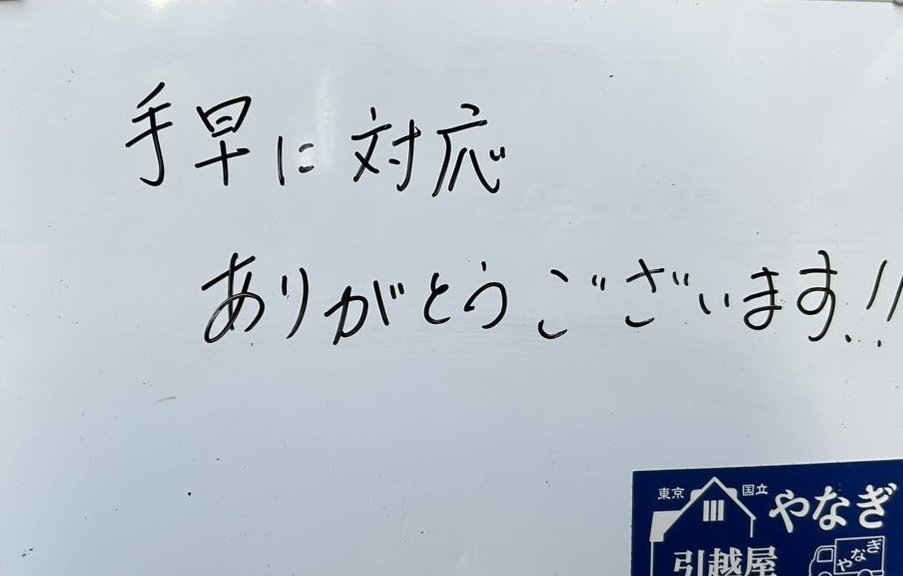 手早に対応
ありがとうございます!!
東京 国立 やなぎ
引越屋
やなぎ